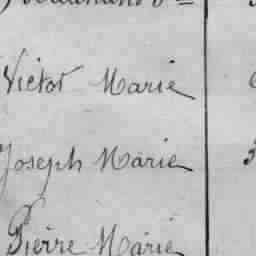 Victor Marie
Joseph Marie 3
Pierre Marie